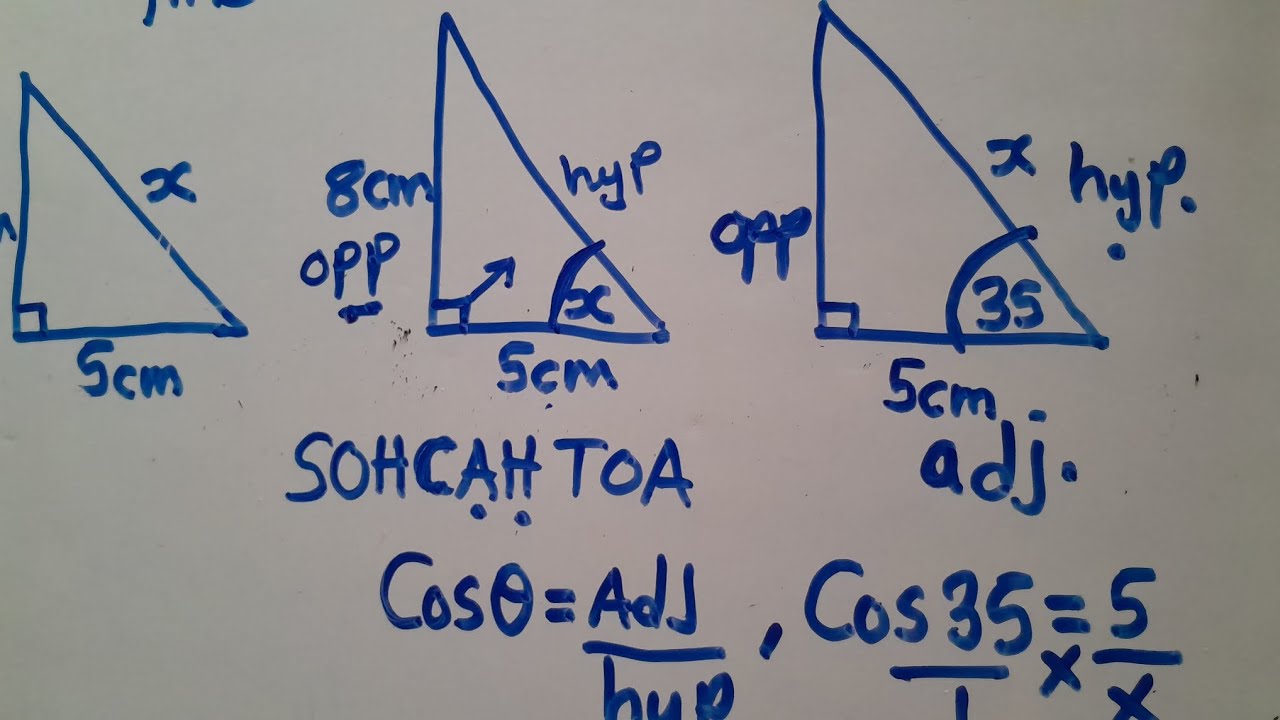 x
5cm
8cm
opp
hyp
x
5cm
opp
x
hyp.
35
5cm
adj.
SOHCAH TOA
Cosθ = Adj / hyp , Cos35 / 1 = 5 / x
x